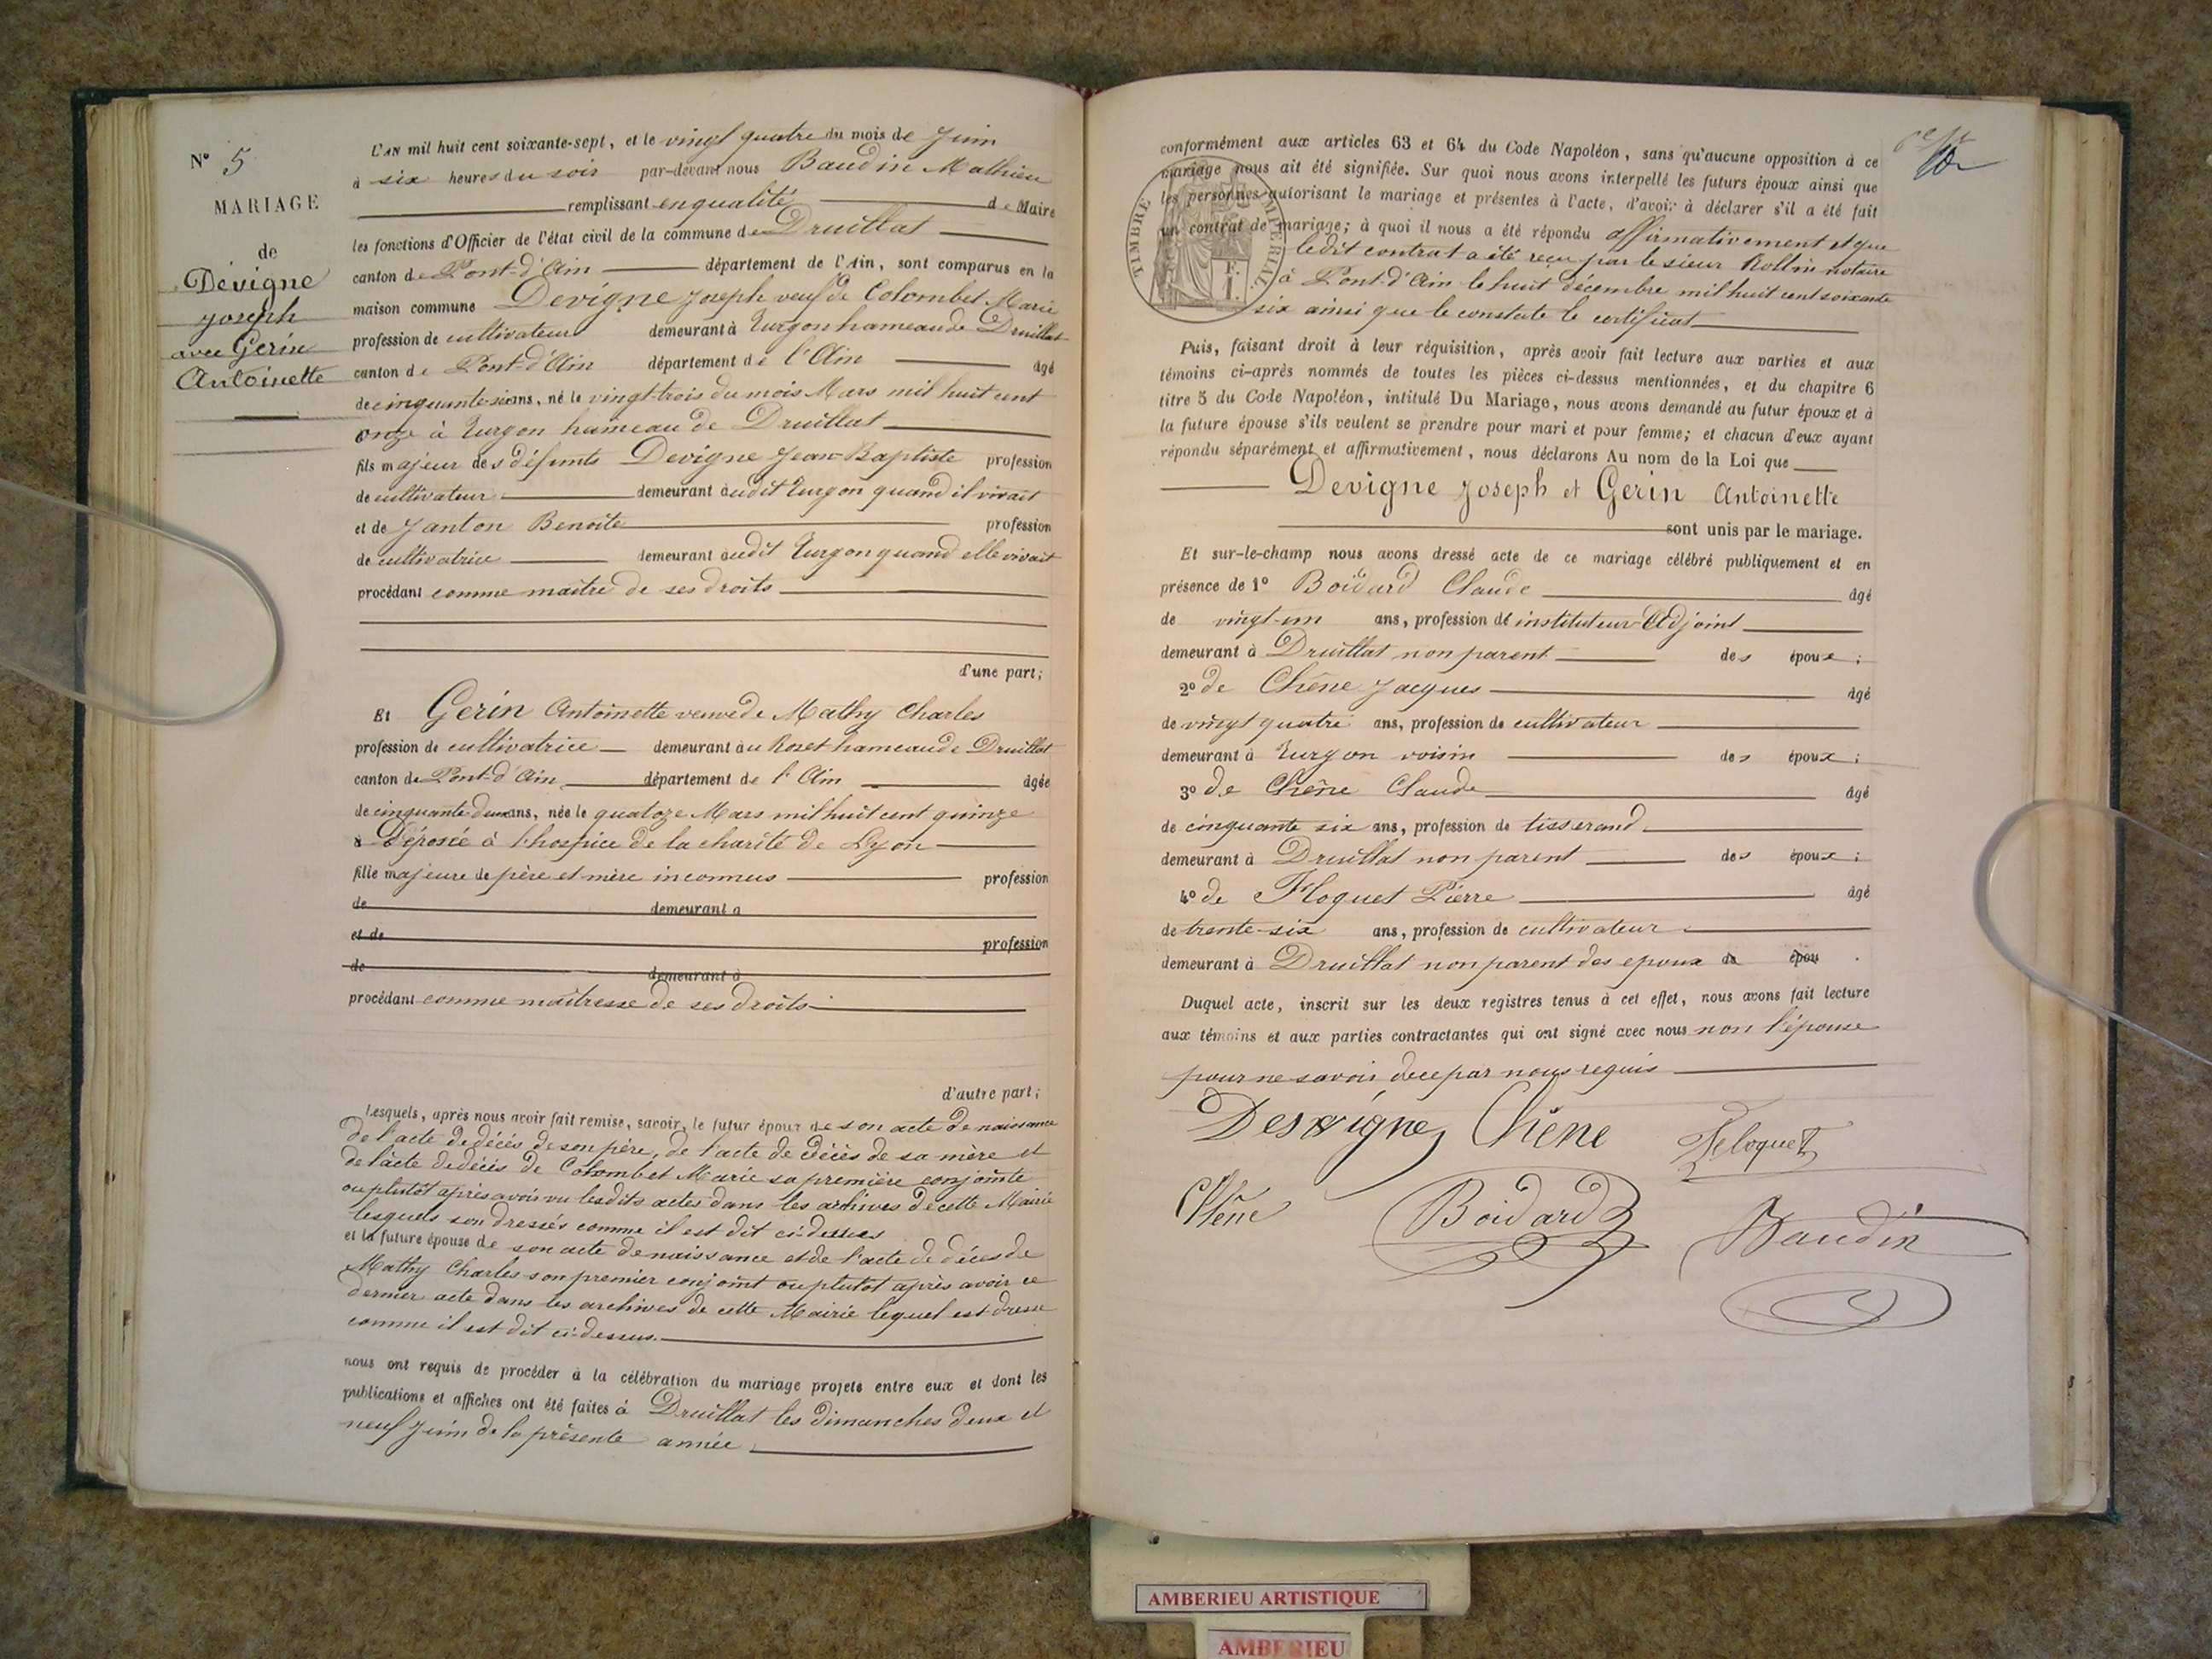 N° 5
MARIAGE
de
Dévigne
Joseph
avec Gerin
Antoinette
L'AN mil huit cent soixante-sept, et le vingt quatre du mois de Juin
à six heures du soir par-devant nous Baudin Mathieu
remplissant en qualité de Maire
les fonctions d'Officier de l'état civil de la commune de Druillat
canton de Pont-d'Ain département de l'Ain, sont comparus en la
maison commune Devigne Joseph veuf de Colombet Marie
profession de cultivateur demeurant à Turgon hameau de Druillat
canton de Pont-d'Ain département de l'Ain âgé
de cinquante-six ans, né le vingt-trois du mois Mars mil huit cent
onze à Turgon hameau de Druillat
fils majeur des défunts Devigne Jean-Baptiste profession
de cultivateur demeurant audit Turgon quand il vivait
et de Janton Benoîte profession
de cultivatrice demeurant audit Turgon quand elle vivait
procédant comme maître de ses droits
d'une part;
Et Gerin Antoinette veuve de Mathy Charles
profession de cultivatrice demeurant au Roset hameau de Druillat
canton de Pont-d'Ain département de l'Ain âgée
de cinquante deux ans, née le quatoze Mars mil huit cent quinze
à Déposée à l'hospice de la charité de Lyon
fille majeure de père et mère inconnus profession
de demeurant a
et de profession
de demeurant à
procédant comme maîtresse de ses droits
d'autre part;
Lesquels, après nous avoir fait remise, savoir, le futur époux de son acte de naissance
de l'acte de décès de son père, de l'acte de décès de sa mère et
de l'acte de décès de Colombet Marie sa première conjointe
ou plutôt après avoir vu lesdits actes dans les archives de cette Mairie
lesquels son dressés comme il est dit ci-dessus
et la future épouse de son acte de naissance et de l'acte de décès de
Mathy Charles son premier conjoint ou plutôt après avoir ce
dernier acte dans les archives de cette Mairie lequel est dressé
comme il est dit ci-dessus.
nous ont requis de procéder à la célébration du mariage projeté entre eux et dont les
publications et affiches ont été faites à Druillat les dimanches deux et
neuf Juin de la présente année
conformément aux articles 63 et 64 du Code Napoléon, sans qu'aucune opposition à ce
mariage nous ait été signifiée. Sur quoi nous avons interpellé les futurs époux ainsi que
les personnes autorisant le mariage et présentes à l'acte, d'avoir à déclarer s'il a été fait
un contrat de mariage; à quoi il nous a été répondu affirmativement et que
ledit contrat a été reçu par le sieur Rollin notaire
à Pont-d'Ain le huit décembre mil huit cent soixante
six ainsi que le constate le certificat
TIMBRE IMPERIAL
F.
1.
Puis, faisant droit à leur réquisition, après avoir fait lecture aux parties et aux
témoins ci-après nommés de toutes les pièces ci-dessus mentionnées, et du chapitre 6
titre 5 du Code Napoléon, intitulé Du Mariage, nous avons demandé au futur époux et à
la future épouse s'ils veulent se prendre pour mari et pour femme; et chacun d'eux ayant
répondu séparément et affirmativement, nous déclarons Au nom de la Loi que
Devigne Joseph et Gerin Antoinette
sont unis par le mariage.
Et sur-le-champ nous avons dressé acte de ce mariage célébré publiquement et en
présence de 1° Boidard Claude âgé
de vingt-un ans, profession de instituteur-Adjoint
demeurant à Druillat non parent des époux;
2° de Chêne Jacques âgé
de vingt quatre ans, profession de cultivateur
demeurant à Turgon voisin des époux;
3° de Chêne Claude âgé
de cinquante six ans, profession de tisserand
demeurant à Druillat non parent des époux;
4° de Floquet Pierre âgé
de trente-six ans, profession de cultivateur
demeurant à Druillat non parent des epoux de épou .
Duquel acte, inscrit sur les deux registres tenus à cet effet, nous avons fait lecture
aux témoins et aux parties contractantes qui ont signé avec nous non l'épouse
pour ne savoir de ce par nous requis
Desvigne Chêne Feloquet
Chêne Boidard Baudin
AMBERIEU ARTISTIQUE
AMBERIEU